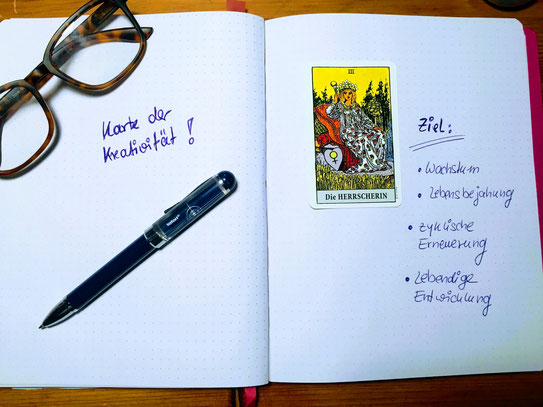 Karte der
Kreativität!
III
Die HERRSCHERIN
Ziel:
• Wachstum
• Lebensbejahung
• zyklische
Erneuerung
• Lebendige
Entwicklung